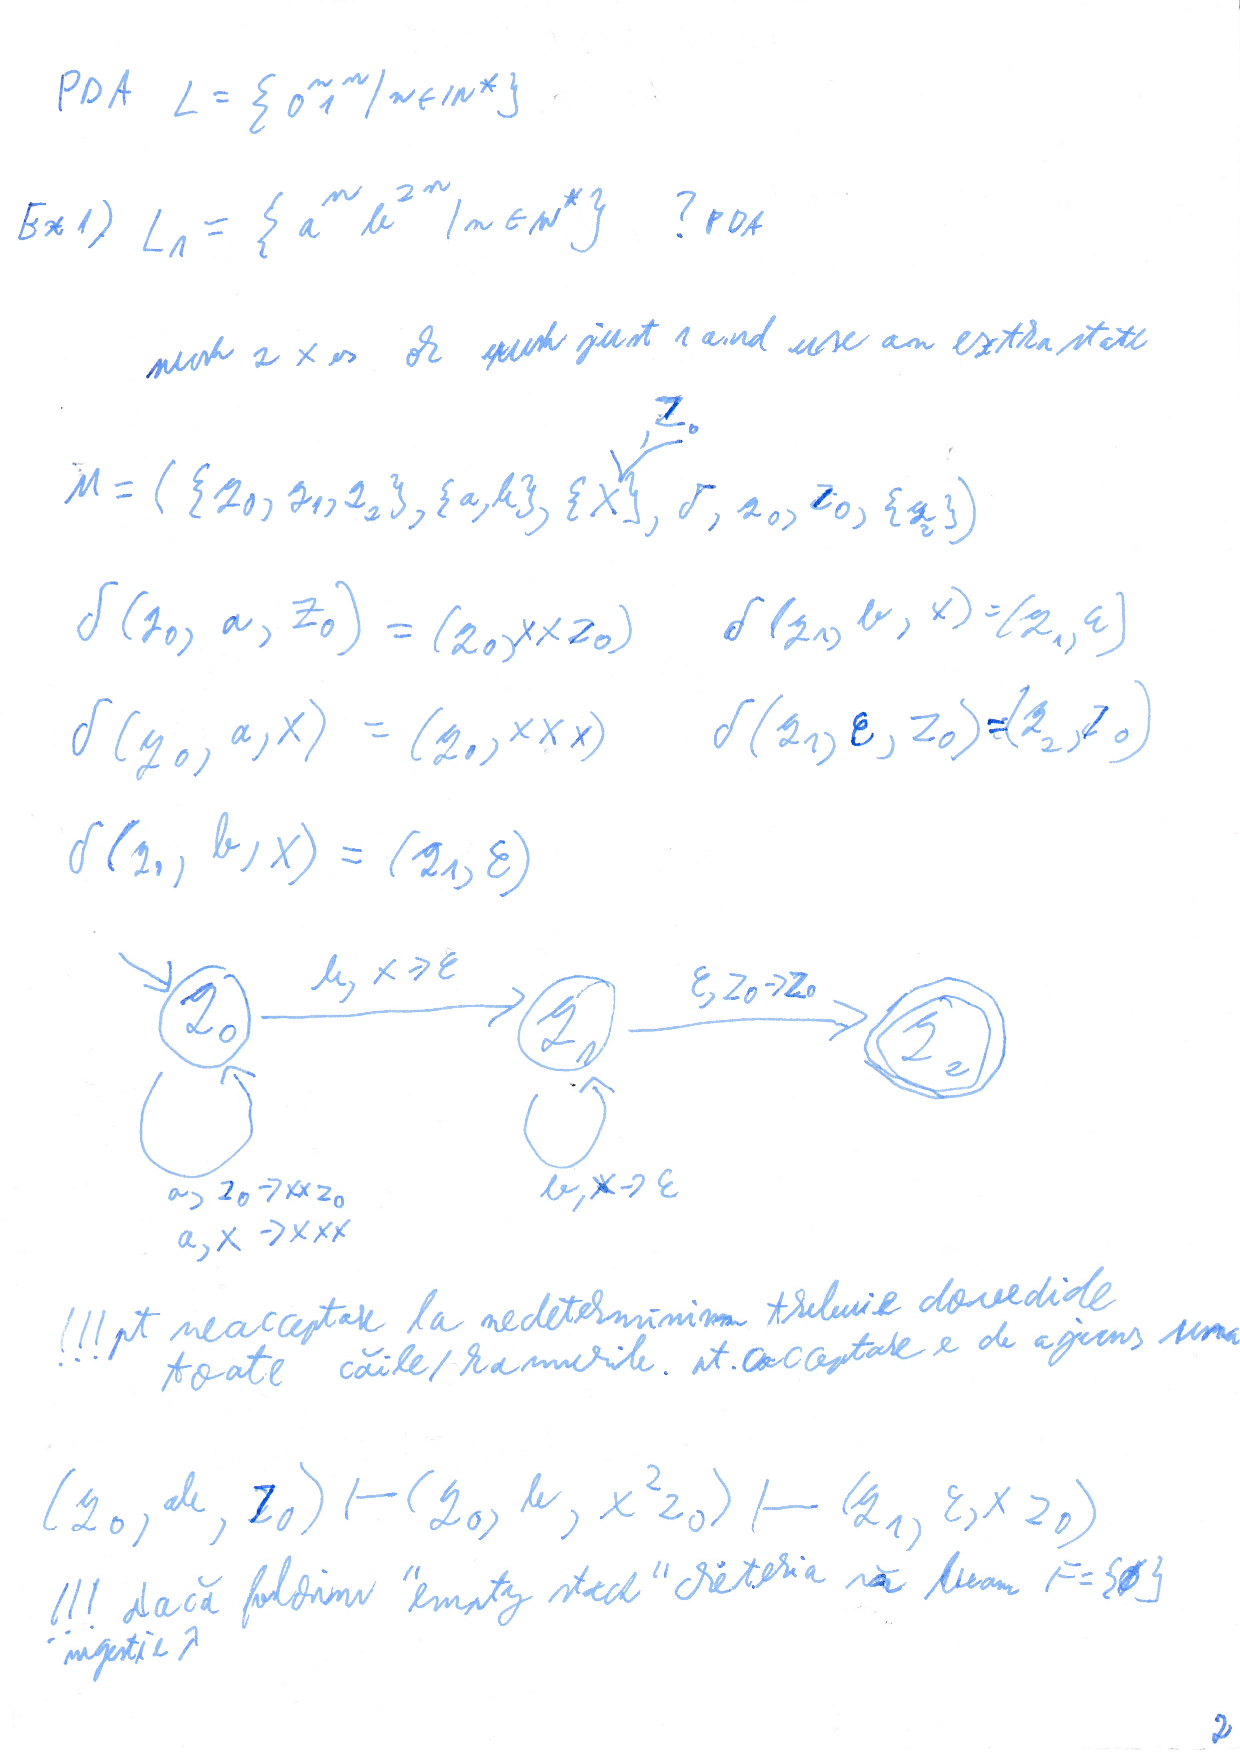 PDA L = { 0ⁿ1ⁿ / n ∈ IN* }
Ex 1) L₁ = { aⁿ b²ⁿ / n ∈ N* } ? PDA
push 2 x es or push just 1 and use an extra state
, Z₀
M = ( {q₀, q₁, q₂}, {a, b}, {X}, δ, q₀, Z₀, {q₂} )
δ(q₀, a, Z₀) = (q₀, XXZ₀) δ(q₁, b, X) = (q₁, ε)
δ(q₀, a, X) = (q₀, XXX) δ(q₁, ε, Z₀) = (q₂, Z₀)
δ(q₀, b, X) = (q₁, ε)
b, X → ε ε, Z₀ → Z₀
q₀ q₁ q₂
a, Z₀ → XXZ₀ b, X → ε
a, X → XXX
!!! pt neacceptare la nedeterminism trebuie dovedide
toate căile/ramurile. pt. acceptare e de ajuns una
(q₀, ab, Z₀) ⊢ (q₀, b, X²Z₀) ⊢ (q₁, ε, XZ₀)
!!! dacă folosim "empty stack" criteria să luam F = {∅}
2